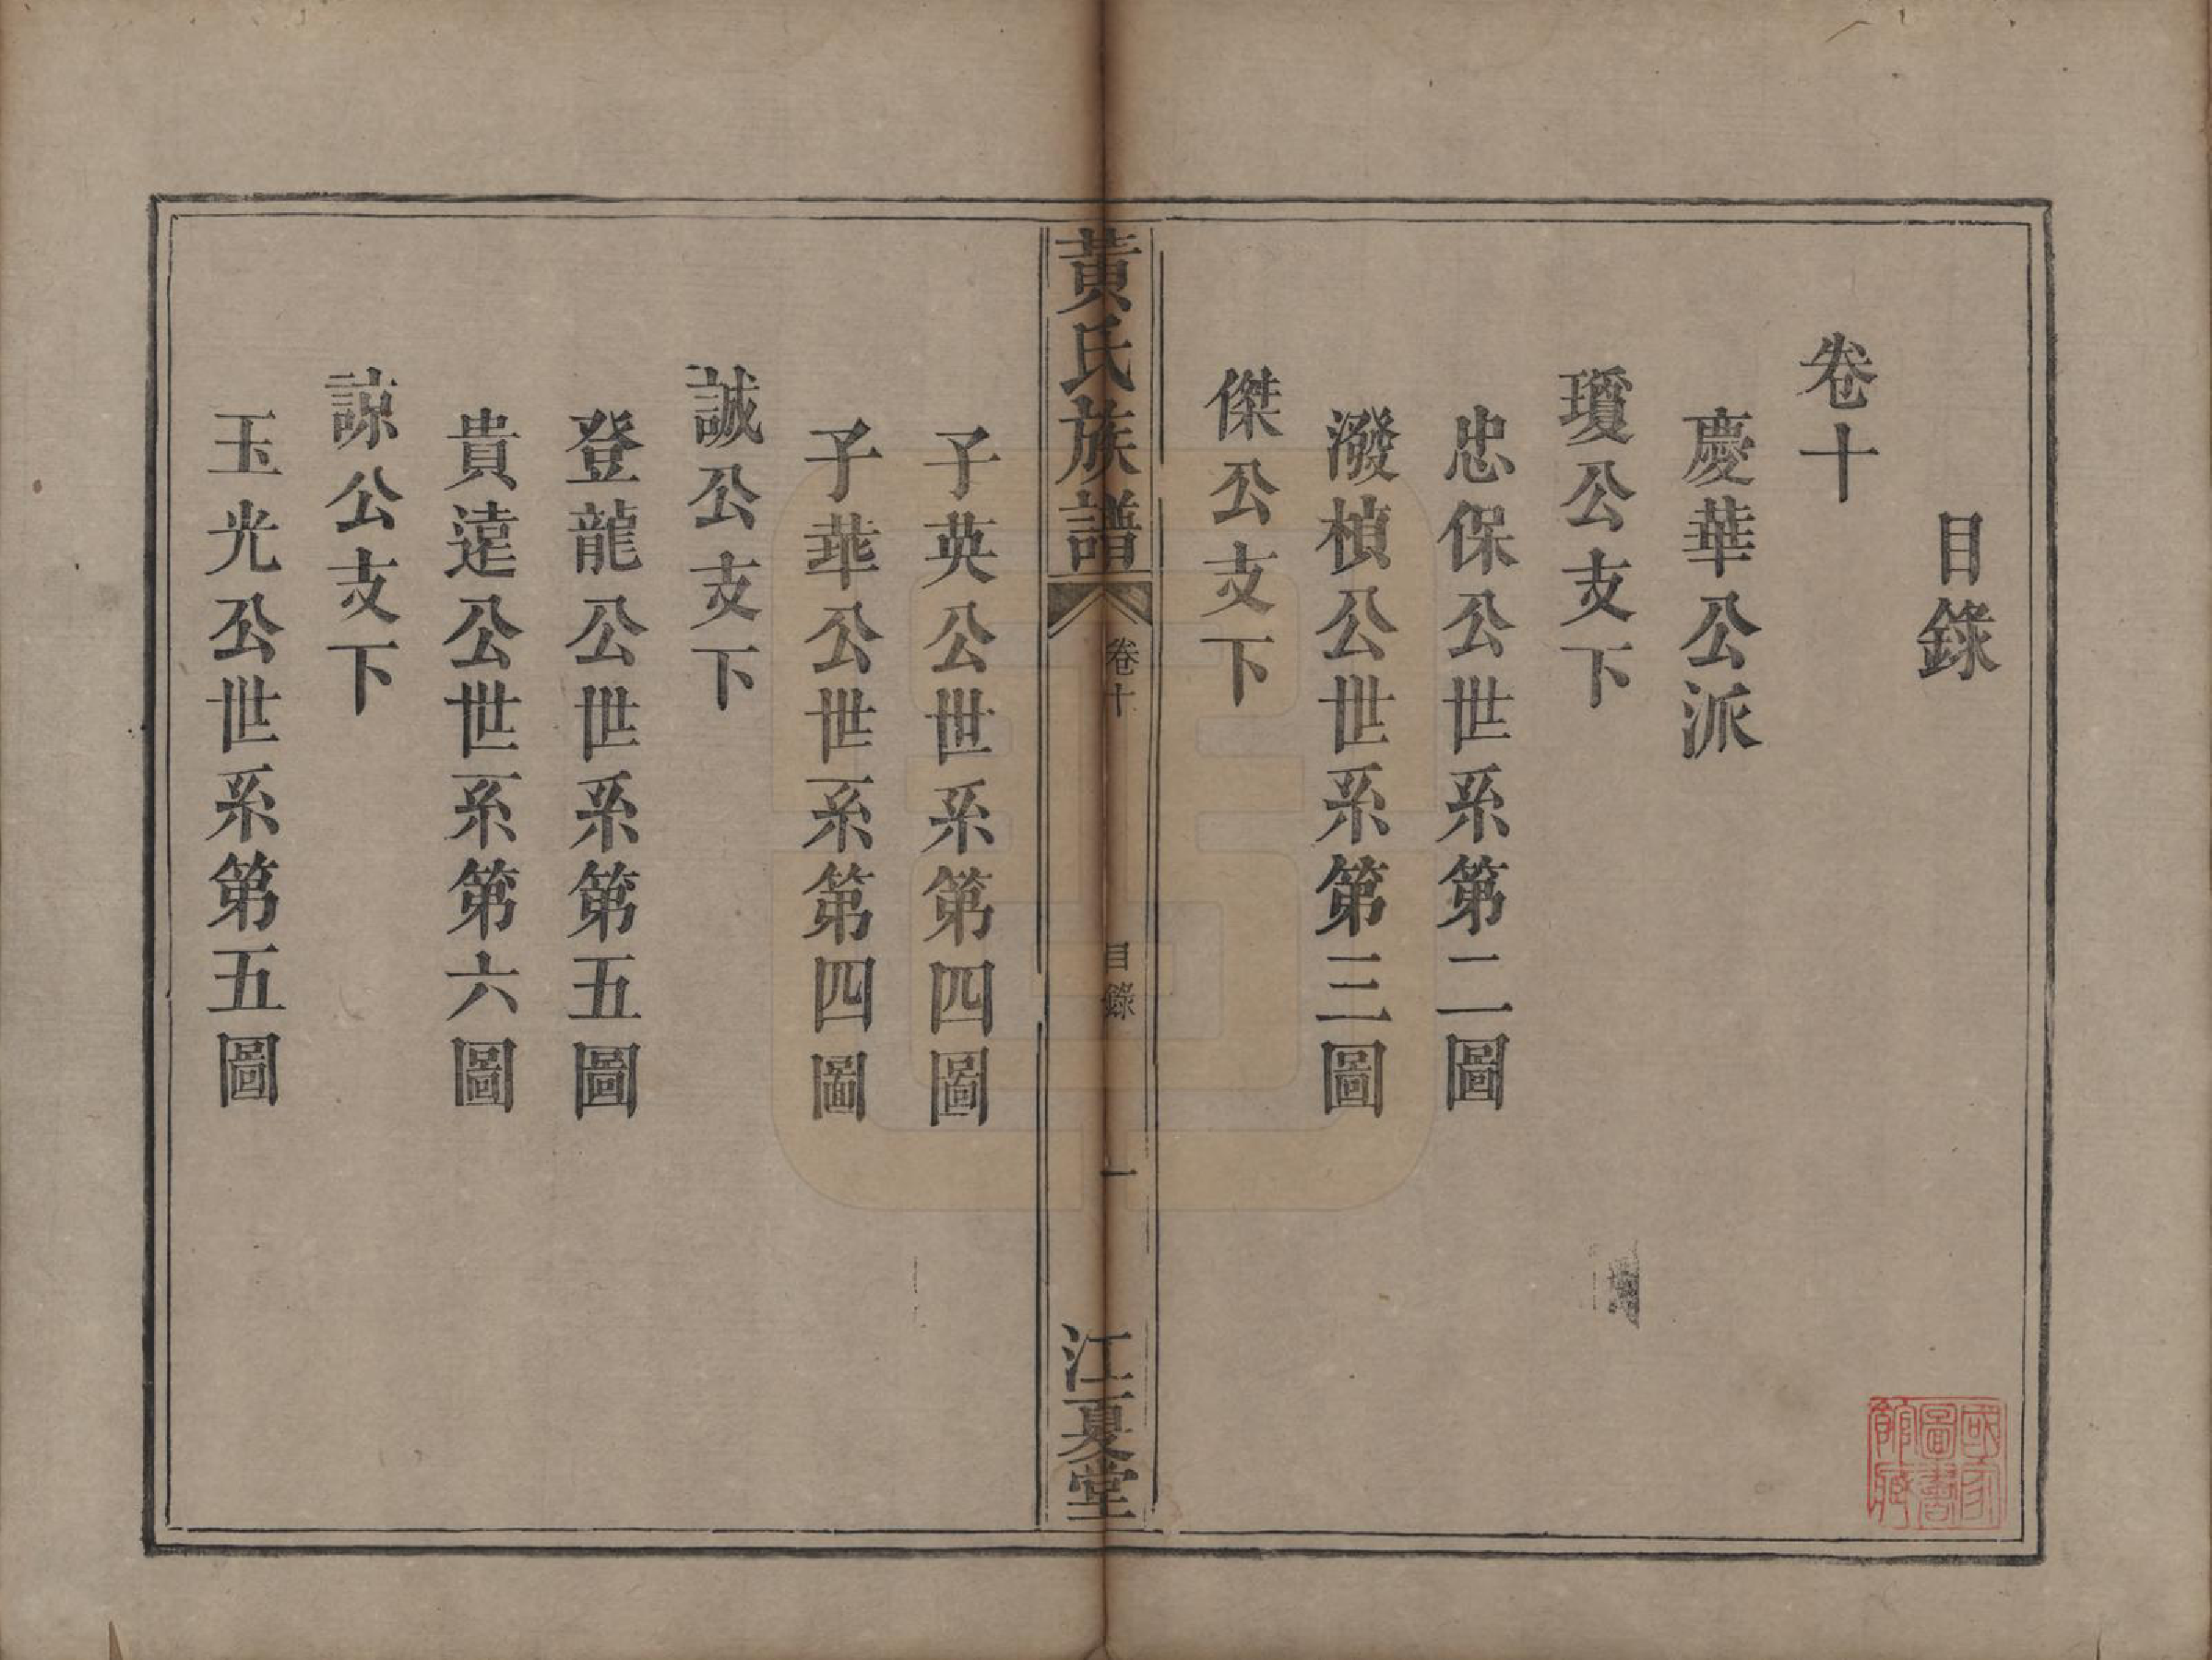 目錄
卷十
慶華公派
瓊公支下
忠保公世系第二圖
潑楨公世系第三圖
傑公支下
黃氏族譜
卷十
目錄
一
江夏堂
子英公世系第四圖
子華公世系第四圖
誠公支下
登龍公世系第五圖
貴遠公世系第六圖
諒公支下
玉光公世系第五圖
國家
圖書
館藏